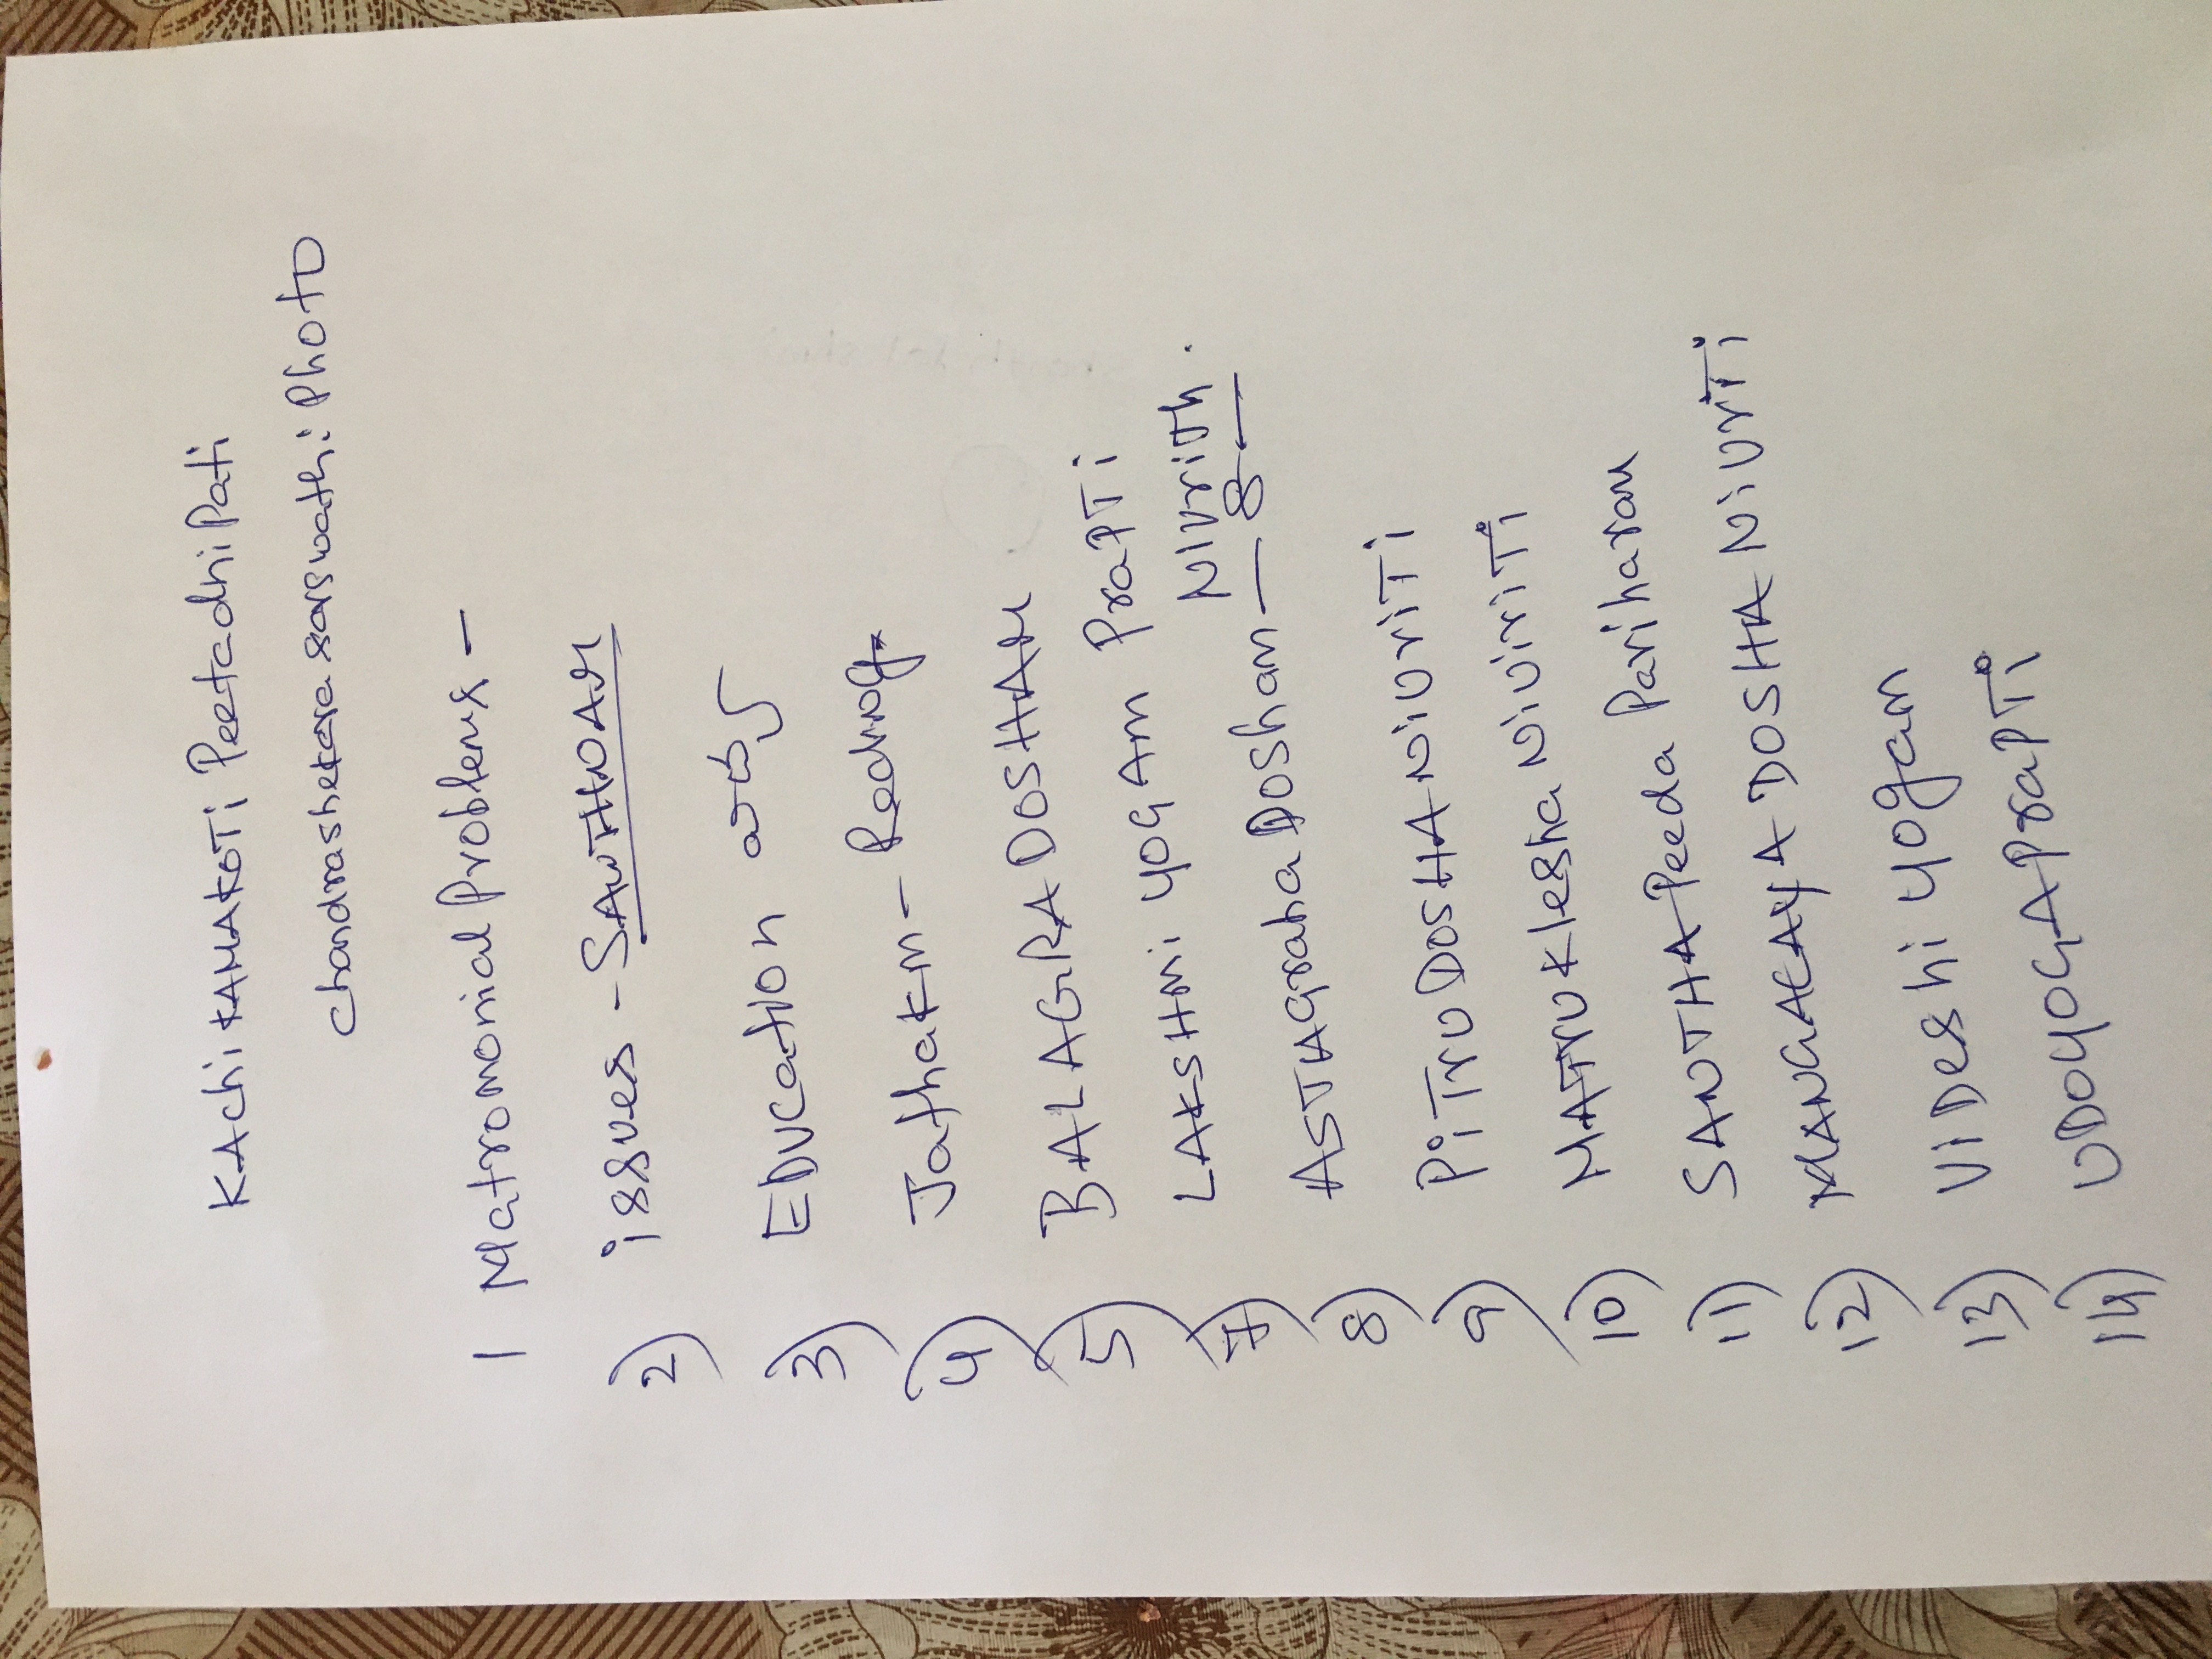 KAchi KAMAKOTi Peetadhi Pati
chandrashekara sarswathi Photo
1 Matromonial Problems -
2) issues - SANTHNAM
3) EDUCation విద్య
4) Jathakm -
5) BALAGRA DOSHAM
LAKSHMi YOGAM PraPTi
7) ASTAGraha DOSham - 8 - Nivrithi.
8) PiTrU DOSHA NiVriTi
9) MATrU Klesha NiViriTi
10) SANTHA Peeda Pariharam
11) MANGALAYA DOSHA NiVrTi
12) ViDeshi Yogam
13) UDOYOGA PraPTi
14)